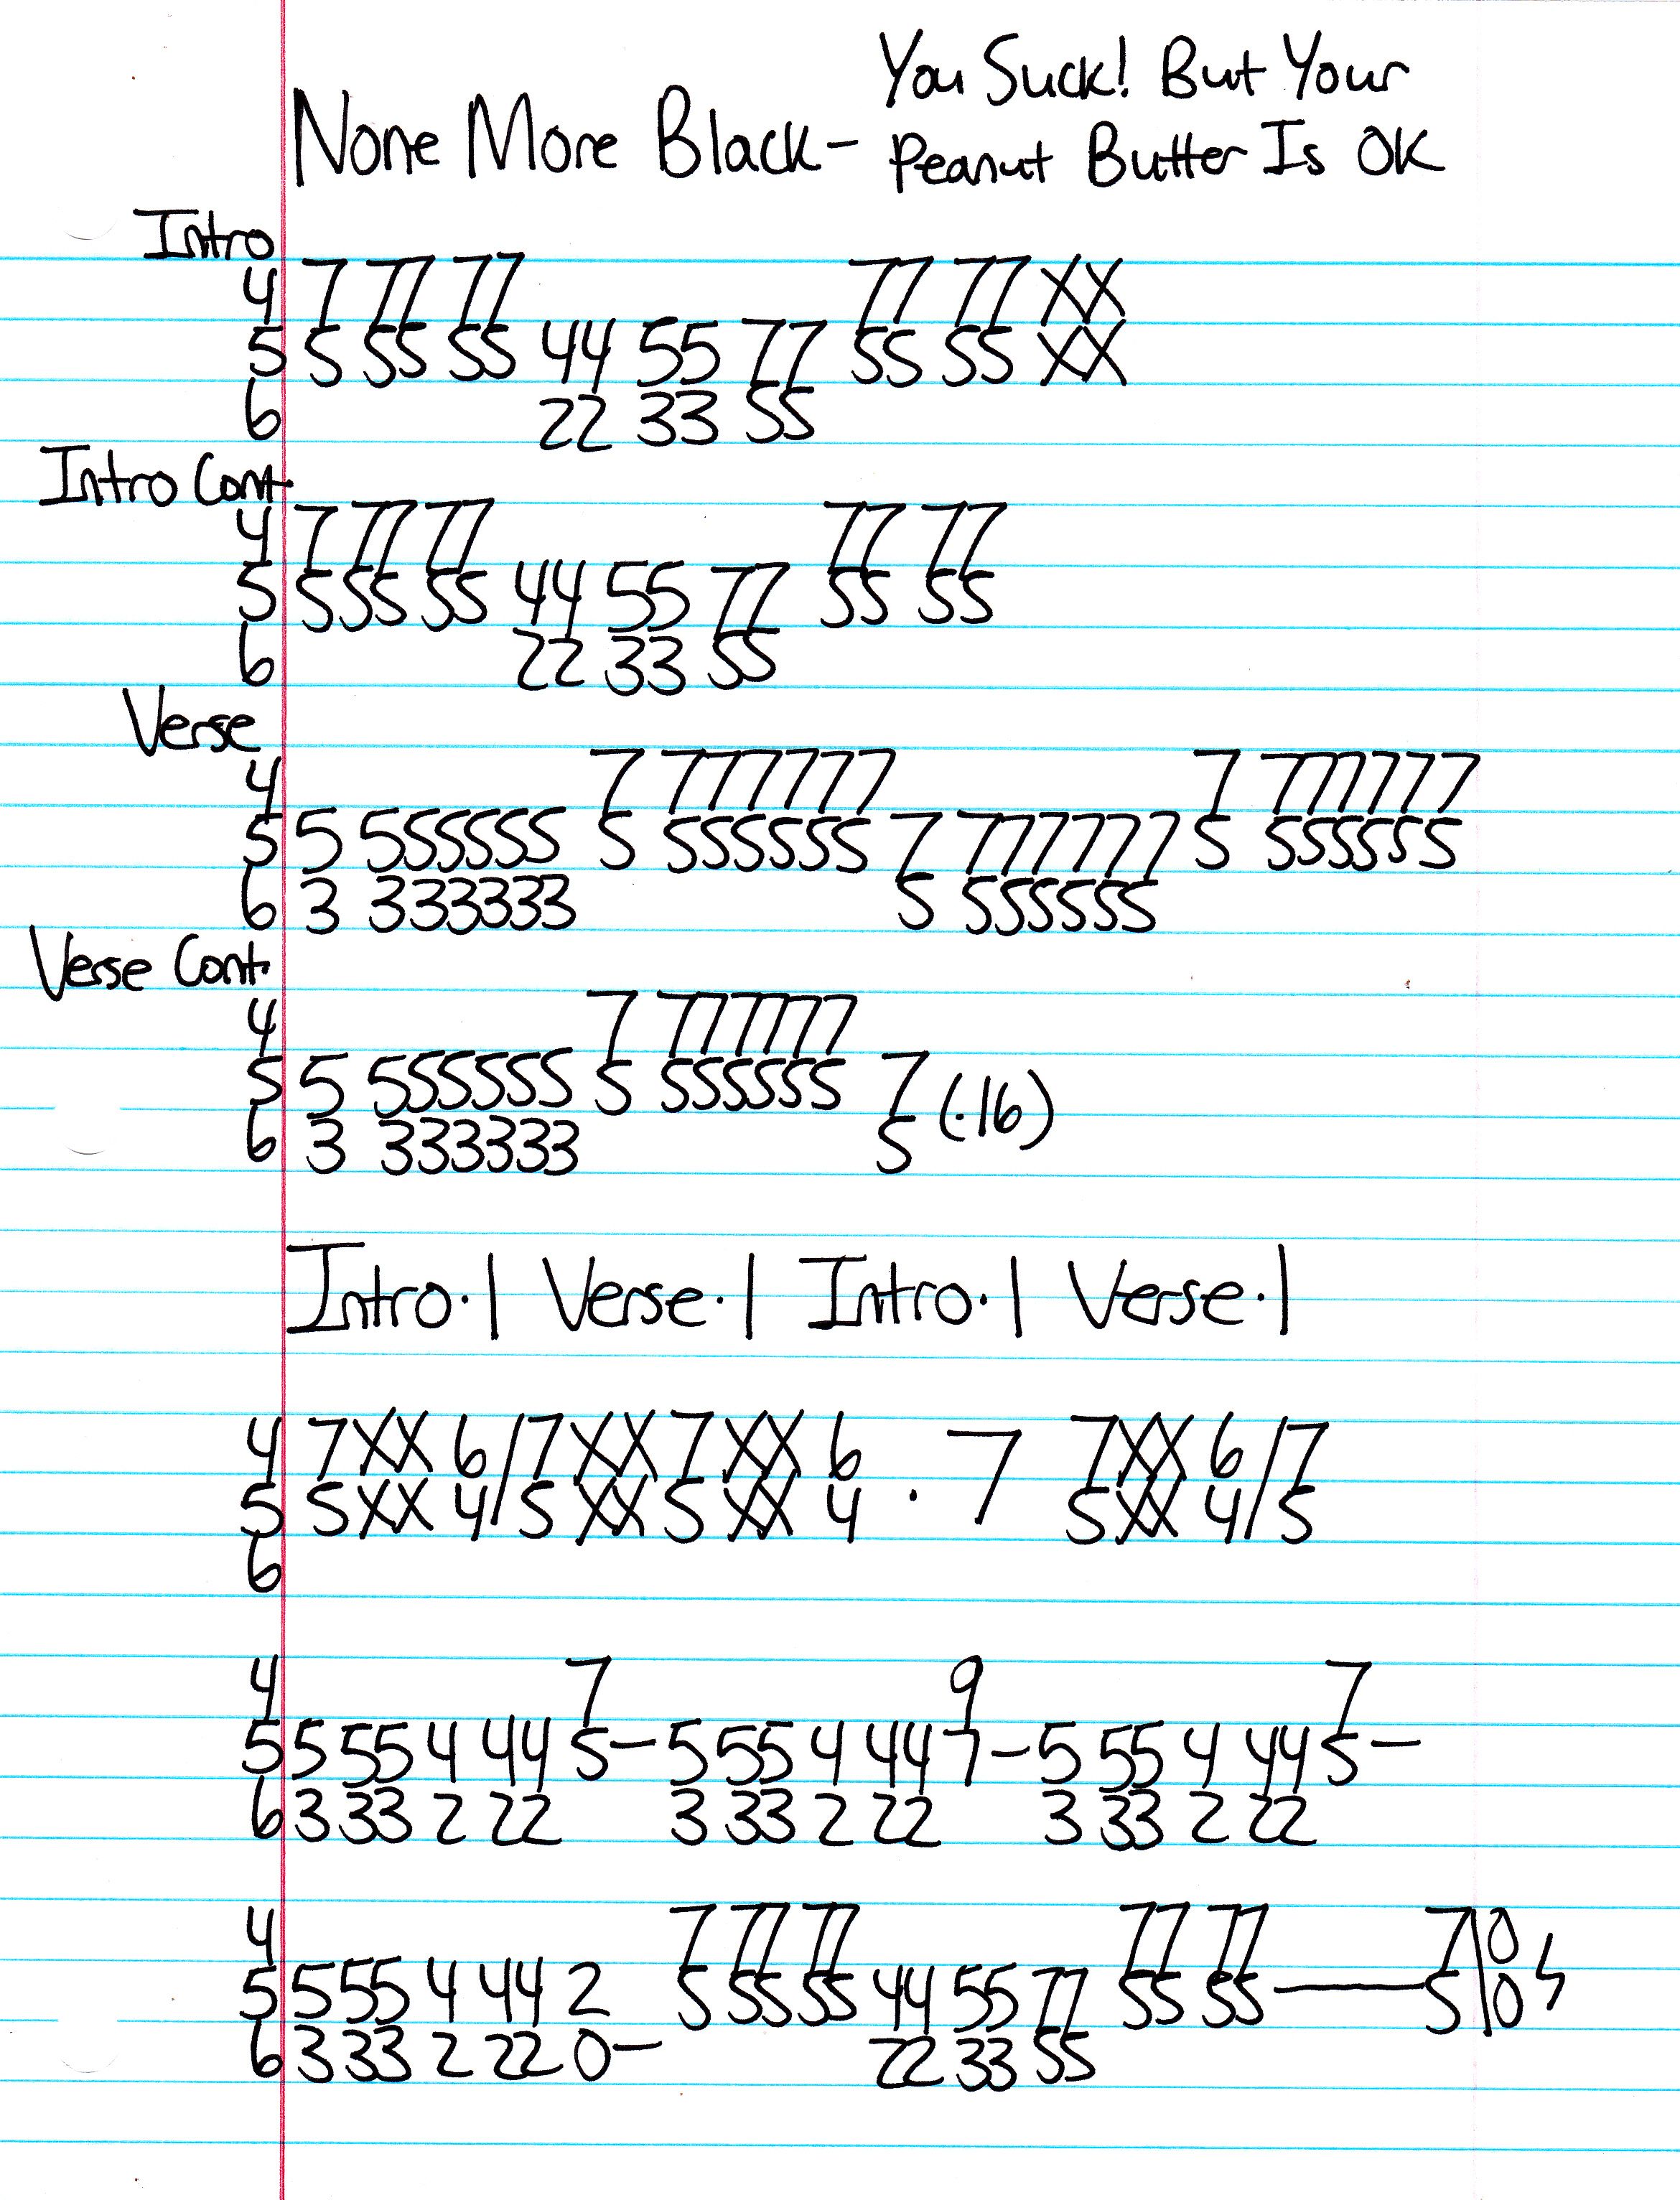 You Suck! But Your
None More Black- Peanut Butter Is OK
Intro
4 7 77 77 77 77 XX
5 5 55 55 44 55 77 55 55 XX
6 22 33 55
Intro Cont.
4 7 77 77 77 77
5 5 55 55 44 55 77 55 55
6 22 33 55
Verse
4 7 777777 7 777777
5 5 555555 5 555555 7 777777 5 555555
6 3 333333 5 555555
Verse Cont.
4 7 777777
5 5 555555 5 555555 7 (·16)
6 3 333333 5
Intro·| Verse·| Intro·| Verse·|
4 7XX 6/7XX 7XX 6 · 7 7XX 6/7
5 5XX 4/5XX 5XX 4 5XX 4/5
6
4 7 9 7
5 5 55 4 44 5- 5 55 4 44 7- 5 55 4 44 5-
6 3 33 2 22 3 33 2 22 3 33 2 22
4 7 77 77 77 77 7|0
5 5 55 4 44 2 5 55 55 44 55 77 55 55 — 5|0
6 3 33 2 22 0- 22 33 55